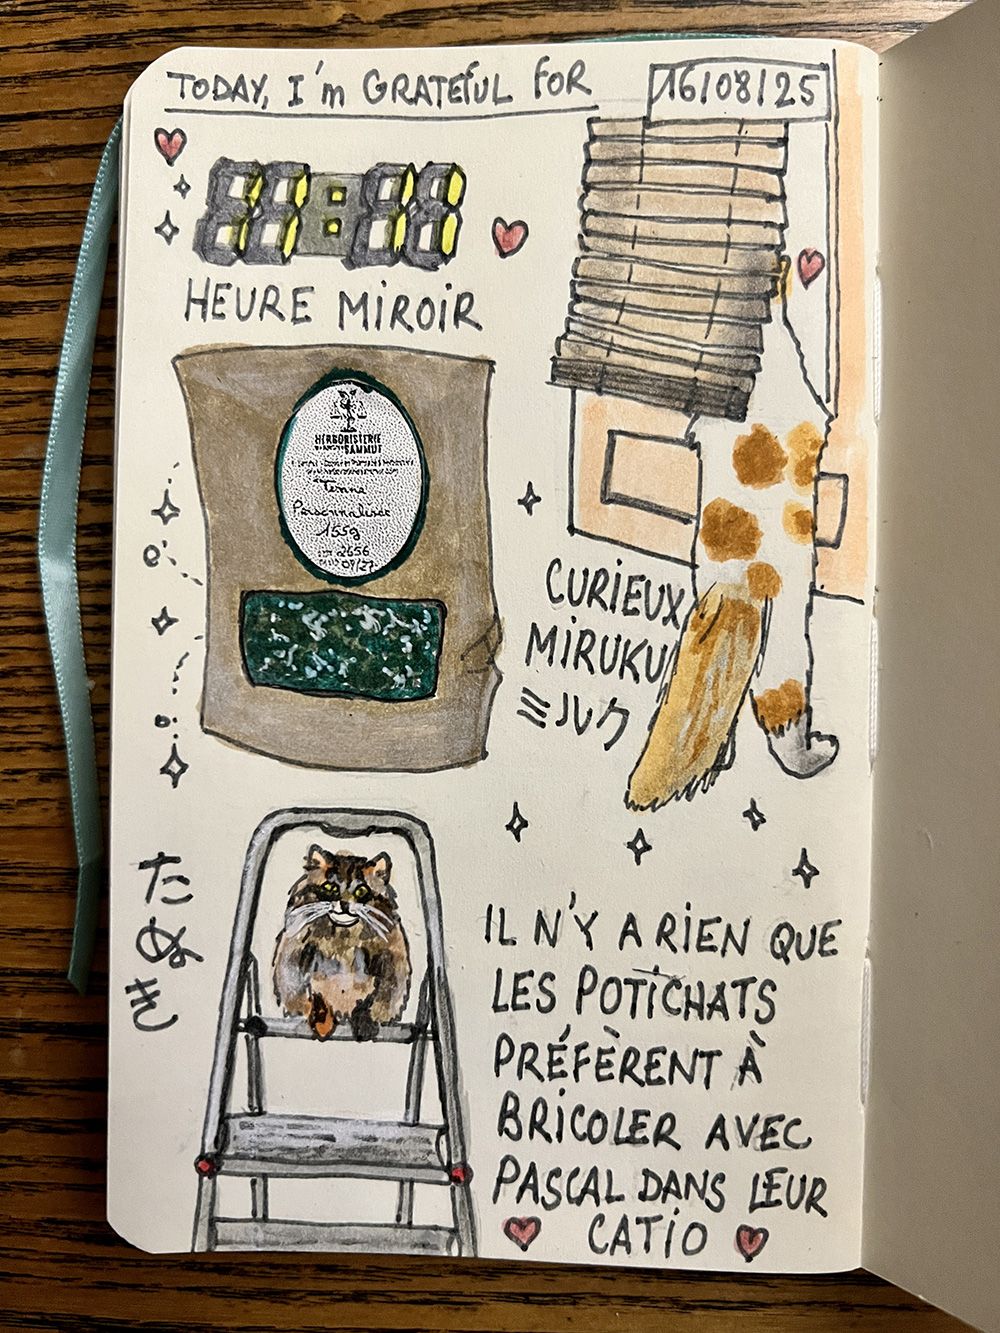 TODAY, I'm GRATEFUL FOR
16/08/25
11:11
HEURE MIROIR
HERBORISTERIE
SAMMUT
Personnalisée
155g
2656
CURIEUX
MIRUKU
ミルク
たぬき
IL N'Y A RIEN QUE
LES POTICHATS
PRÉFÈRENT À
BRICOLER AVEC
PASCAL DANS LEUR
CATIO